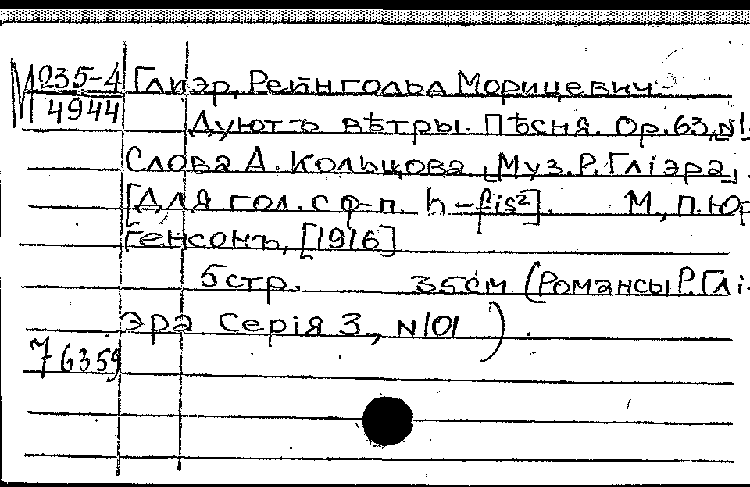 М 235-4 Глиэр, Рейнгольд Морицевич
4944 Дуютъ вѣтры. Пѣсня. Ор.63, №1.
Слова А. Кольцова, Муз. Р. Гліэра,
[Для гол. с ф-п. h - fis²]. М., П. Юр-
генсонъ, [1916]
5 стр. 35см (Романсы Р. Глі-
эра Серія 3, №101)
76359